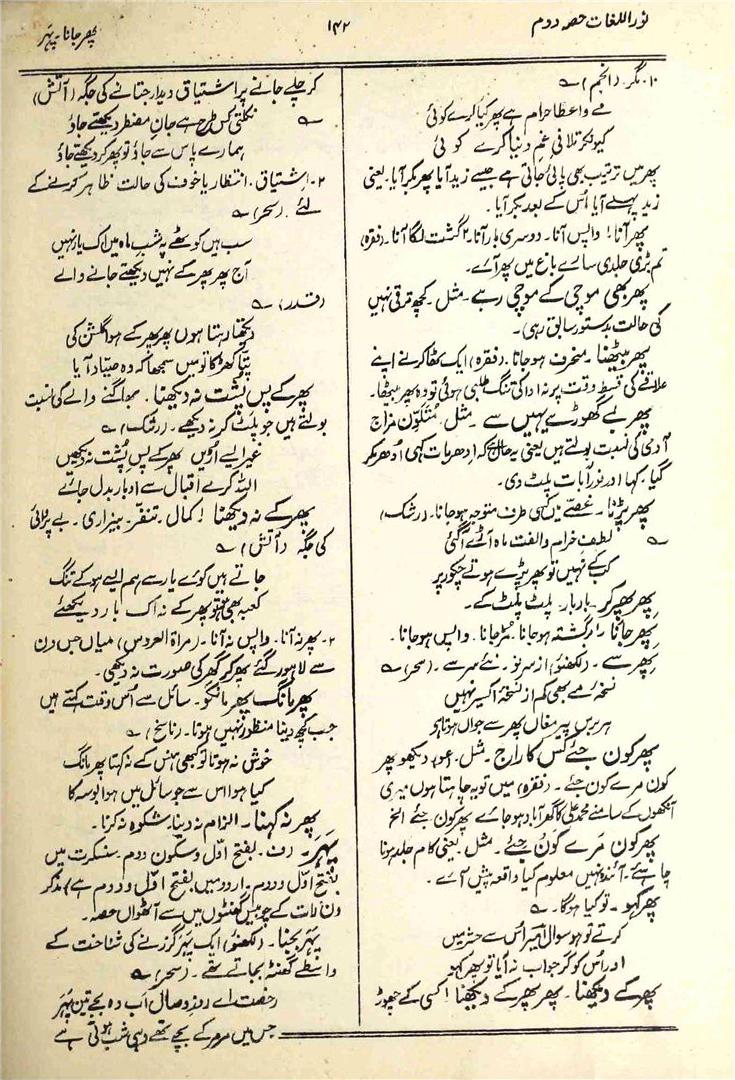 نور اللغات حصہ دوم
۱۴۲
پھر جانا۔ پہَر
۱۰۔ مگر۔ (انجم) ؎
مے واعظا حرام ہے پھر کیا کرے کوئی
کیونکر تلافیِ غمِ دنیا کرے کوئی
پھر میں ترتیب بھی پائی جاتی ہے جیسے زید آیا پھر بکر آیا۔ یعنی
زید پہلے آیا اس کے بعد بکر آیا۔
پھر آنا! واپس آنا۔ دوسری بار آنا۔ ۲ گشت لگا آنا۔ (فقرہ)
تم بڑی جلدی سارے باغ میں پھر آئے۔
پھر بھی موچی کے موچی رہے۔ مثل۔ کچھ ترقی نہیں
کی حالت بدستور سابق رہی۔
پھر بیٹھنا۔ منحرف ہو جانا۔ (فقرہ) ایک نے اپنے
علاقے کی قسط وقت پر نہ ادا کی تنگ طلبی ہوئی تو وہ پھر بیٹھا۔
پھر بے گھوڑے یہیں سے۔ مثل۔ مُتلوّن مزاج
آدمی کی نسبت بولتے ہیں یعنی یہ حال ہے کہ ادھر بات کہی اُدھر مکر
گیا۔ کہا اور فوراً بات پلٹ دی۔
پھر پڑنا۔ غصّے میں کسی طرف متوجہ ہو جانا۔ (رشک)
؎ لطفِ خرام و الفت ماہ آڑے آگئی
کب کے نہیں تو پھر پڑے ہوتے چکور پر
پھر پھر کر۔ بار بار۔ پلٹ پلٹ کے۔
پھر جانا۔ برگشتہ ہو جانا۔ مڑ جانا۔ واپس ہو جانا۔
پھر سے۔ (لکھنؤ) از سرِ نو۔ نئے سرے سے۔ (سحر) ؎
نسخۂ مے بھی کم از نسخۂ اکسیر نہیں
ہر برس پیرِ مغاں پھر سے جواں ہوتا ہے
پھر کون جئے کس کا راج۔ مثل۔ (عو) دیکھو پھر
کون مرے کون جئے۔ (فقرہ) میں تو یہ چاہتا ہوں میری
آنکھوں کے سامنے محمد علی کا گھر آباد ہو جائے پھر کون جئے الخ
پھر کون مرے کون جئے۔ مثل۔ یعنی کام جلد ہونا
چاہئے۔ آئندہ نہیں معلوم کیا واقعہ پیش آئے۔
پھر کہو۔ تو کیا ہوگا۔ ؎
کرتے تو ہو سوال امیر اُس سے حشر میں
اور اُس کو گر جواب نہ آیا تو پھر کہو
پھر کے دیکھنا۔ پھر پھر کے دیکھنا! کسی کے چھوڑ
کر چلے جانے پر اشتیاق دیدار جتانے کی جگہ (آتش)
؎ نکلتی کس طرح ہے جانِ مضطر دیکھتے جاؤ
ہمارے پاس سے جاؤ تو پھر کر دیکھتے جاؤ
۲۔ اشتیاق۔ انتظار یا خوف کی حالت ظاہر کرنے کے
لئے۔ (سحر) ؎
سب ہیں کوٹھے پہ شبِ ماہ میں اک یار نہیں
آج پھر پھر کے نہیں دیکھتے جانے والے
(قدر) ؎
دیکھتا رہتا ہوں پھر پھر کے ہوا گلشن کی
پتّا کھڑکا تو میں سمجھا کہ وہ صیاد آیا
پھر کے پس پشت نہ دیکھنا۔ بھاگنے والے کی نسبت
بولتے ہیں جو پلٹ کر نہ دیکھے۔ (رشک) ؎
غیر ایسے اُڑیں پھر کے پس پُشت نہ دیکھیں
اللہ کرے اقبال سے ادبار بدل جائے
پھر کے نہ دیکھنا! کمال۔ تنفّر۔ بیزاری۔ بے پروائی
کی جگہ (آتش) ؎
جاتے ہیں کوئے یار سے ہم ایسے ہو کے تنگ
کعبہ بھی ہو تو پھر کے نہ اک بار دیکھئے
۲۔ پھر نہ آنا۔ واپس نہ آنا۔ (مراۃ العروس) میاں جس دن
سے لاہور گئے پھر کر گھر کی صورت نہ دیکھی۔
پھر مانگ پھر مانگو۔ سائل سے اُس وقت کہتے ہیں
جب کچھ دینا منظور نہیں ہوتا۔ (ناسخ) ؎
خوش نہ ہوتا تو کبھی ہنس کے نہ کہتا پھر مانگ
کیا ہوا اس سے جو سائل میں ہوا بوسہ کا
پھر نہ کہنا۔ الزام نہ دینا۔ شکوہ نہ کرنا۔
پہَر۔ (ف۔ بفتح اوّل و سکون دوم۔ سنسکرت میں
بفتح اوّل و دوم۔ اردو میں بفتح اوّل و دوم ہے) مذکر
دن رات کے چوبیس گھنٹوں میں سے آٹھواں حصہ۔
پہَر بجنا۔ (لکھنؤ) ایک پہَر گزرنے کی شناخت کے
واسطے گھنٹہ بجاتے تھے۔ (سحر) ؎
رخصت اے روزِ وصال اب وہ بجے تین پہَر
جس میں مر مر کے بچے تھے وہی شب ہوتی ہے